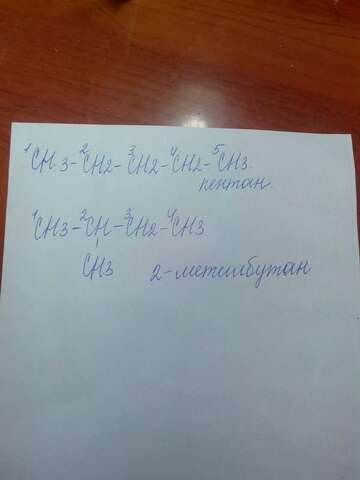 ¹CH3-²CH2-³CH2-⁴CH2-⁵CH3.
пентан.
¹CH3-²CH-³CH2-⁴CH3
CH3 2-метилбутан